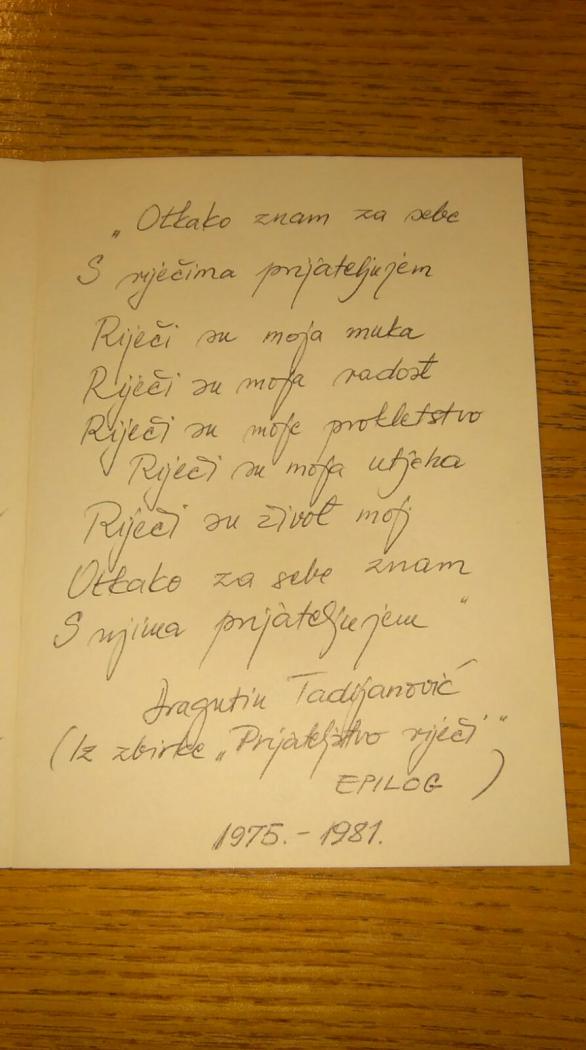 „Otkako znam za sebe
S riječima prijateljujem
Riječi su moja muka
Riječi su moja radost
Riječi su moje prokletstvo
Riječi su moja utjeha
Riječi su život moj
Otkako za sebe znam
S njima prijateljujem"
Dragutin Tadijanović
(Iz zbirke „Prijateljstvo riječi"
EPILOG )
1975. - 1981.